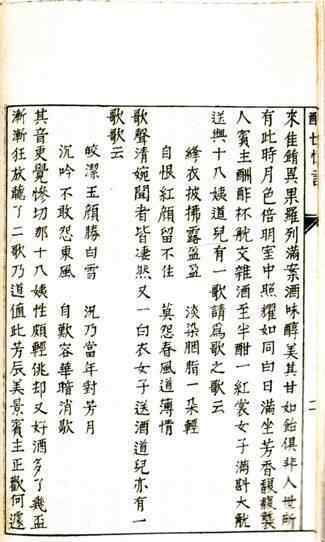 醒世恆言
二
來佳餚異果羅列滿案酒味醇美其甘如飴俱非人世所
有此時月色倍明室中照耀如同白日滿坐芳香馥馥襲
人賓主酬酢杯觥交雜酒至半酣一紅裳女子滿斟大觥
送與十八姨道兒有一歌請爲歌之歌云
絳衣披拂露盈盈　淡染胭脂一朶輕
自恨紅顔留不住　莫怨春風道薄情
歌聲清婉聞者皆凄然又一白衣女子送酒道兒亦有一
歌歌云
皎潔玉顔勝白雪　況乃當年對芳月
沉吟不敢怨東風　自歎容華暗消歇
其音更覺慘切那十八姨性頗輕佻却又好酒多了幾盃
漸漸狂放聽了二歌乃道値此芳辰美景賓主正歡何遽